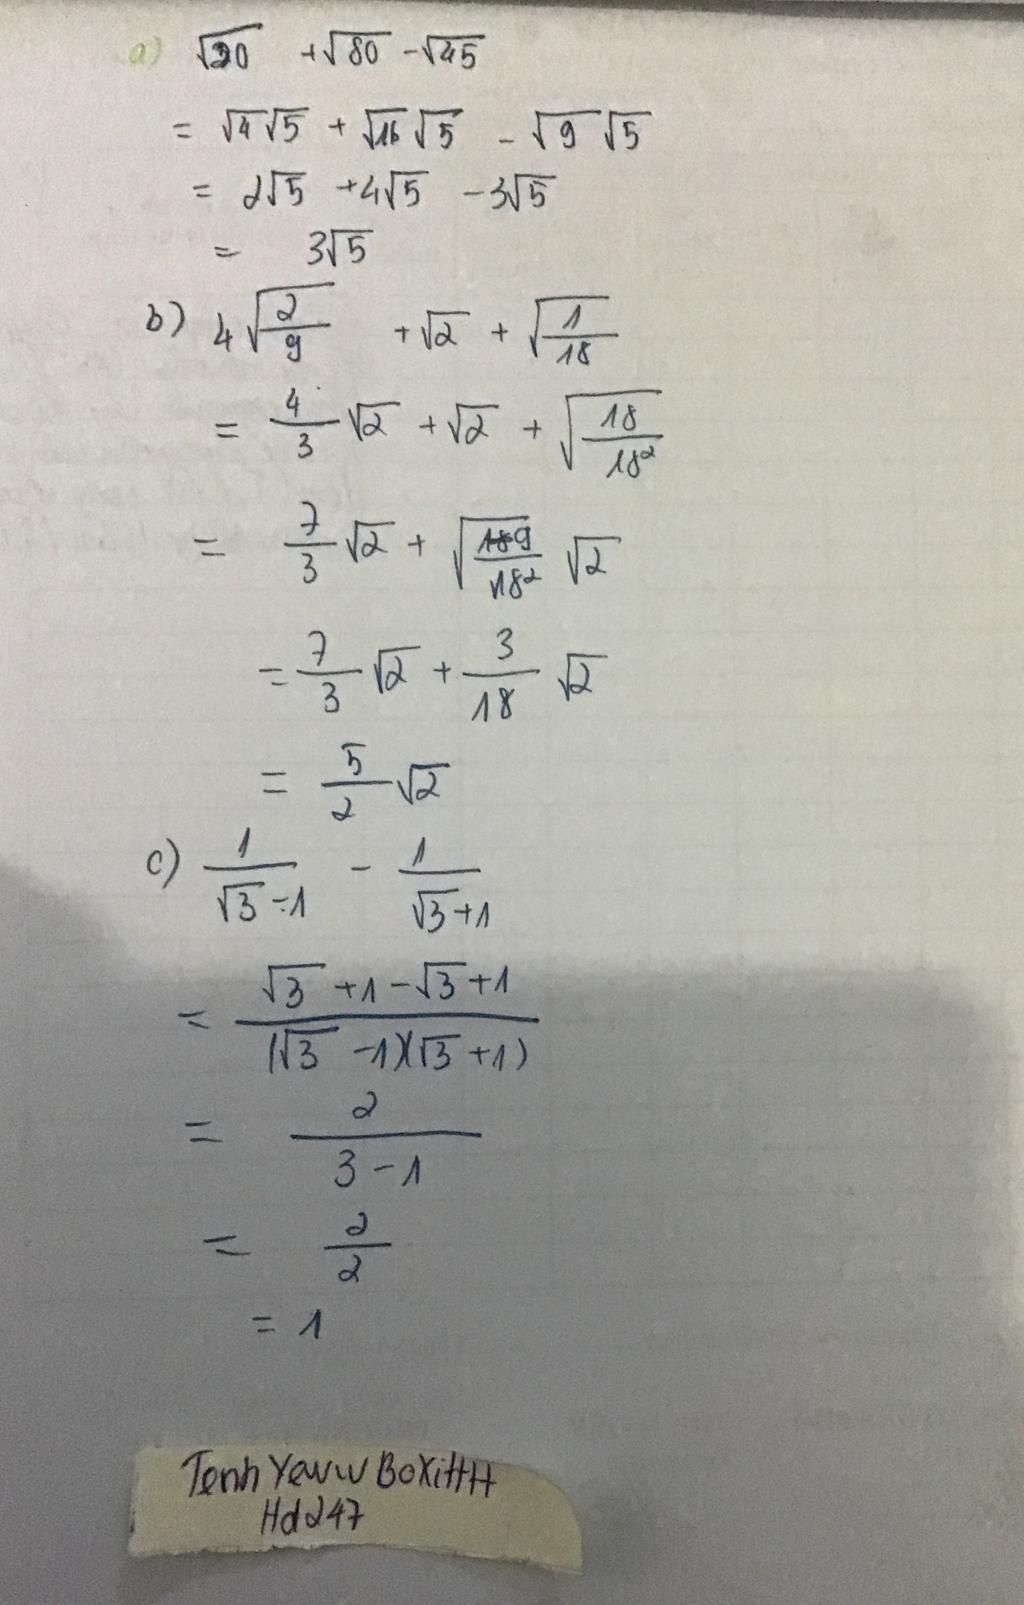 a) √20 + √80 - √45
= √4 √5 + √16 √5 - √9 √5
= 2√5 + 4√5 - 3√5
= 3√5
b) 4√(2/9) + √2 + √(1/18)
= 4/3 √2 + √2 + √(18/18²)
= 7/3 √2 + √(9/18²) √2
= 7/3 √2 + 3/18 √2
= 5/2 √2
c) 1/(√3 - 1) - 1/(√3 + 1)
= (√3 + 1 - √3 + 1)/((√3 - 1)(√3 + 1))
= 2/(3 - 1)
= 2/2
= 1
Tenh Yeww BoXiHH
Hd247